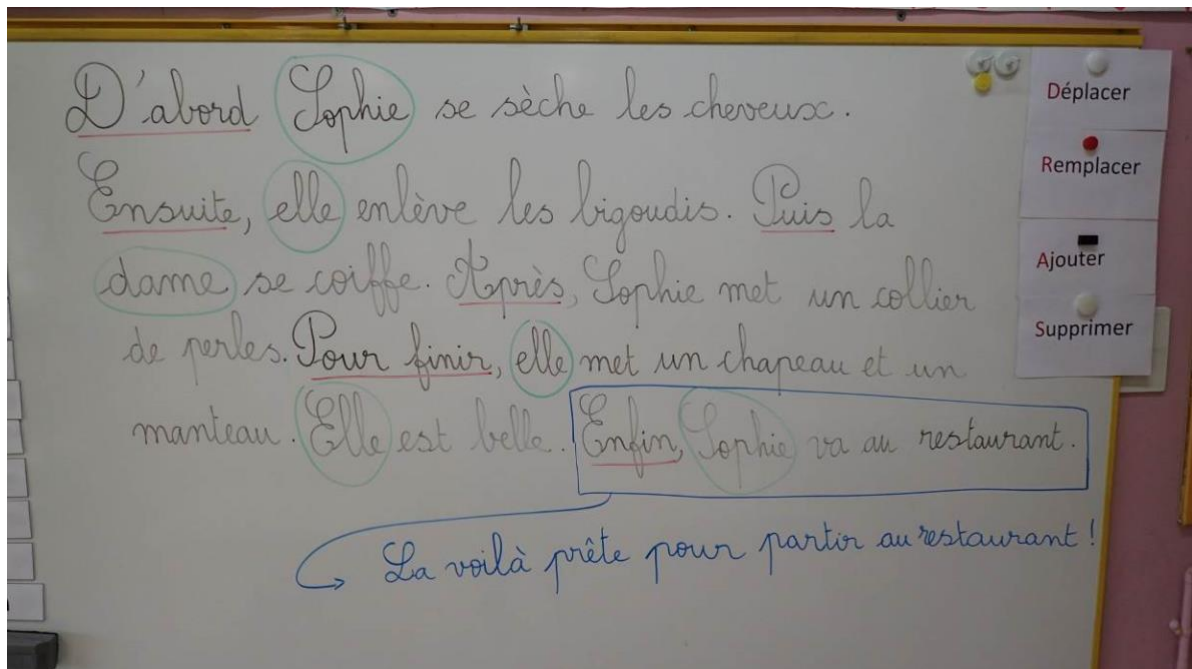 D'abord Sophie se sèche les cheveux.
Ensuite, elle enlève les bigoudis. Puis la
dame se coiffe. Après, Sophie met un collier
de perles. Pour finir, elle met un chapeau et un
manteau. Elle est belle. Enfin, Sophie va au restaurant.
La voilà prête pour partir au restaurant !
Déplacer
Remplacer
Ajouter
Supprimer